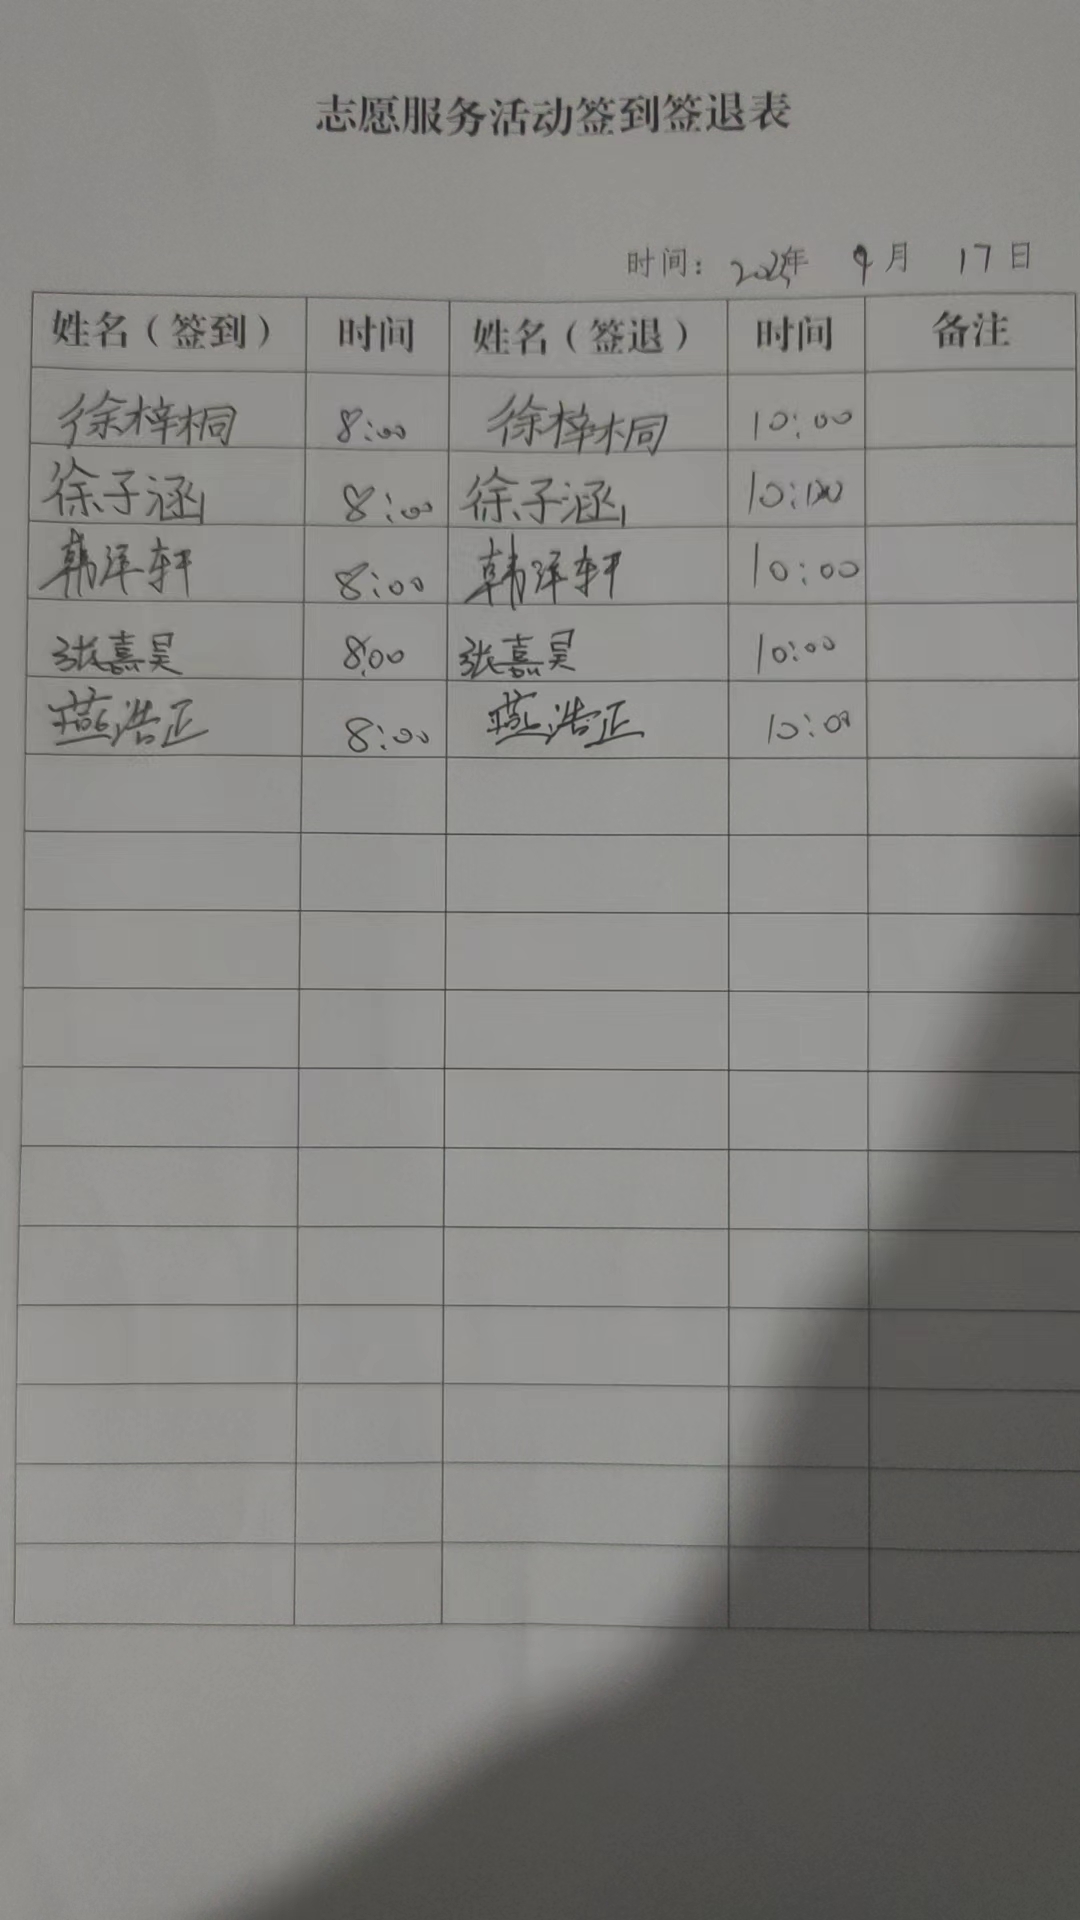 志愿服务活动签到签退表
时间：2025年 9月 17日
姓名（签到） 时间 姓名（签退） 时间 备注
徐梓桐 8:00 徐梓桐 10:00
徐子涵 8:00 徐子涵 10:00
韩洋轩 8:00 韩洋轩 10:00
张嘉昊 8:00 张嘉昊 10:00
燕浩正 8:00 燕浩正 10:00